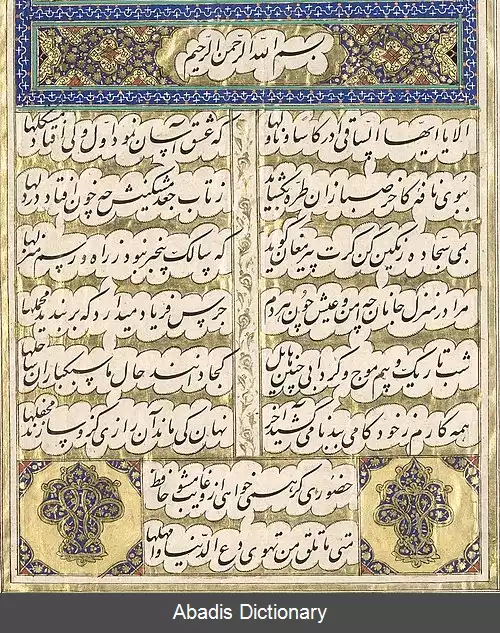 بسم الله الرحمن الرحیم
الا یا ایها الساقی ادر کاسا و ناولها که عشق آسان نمود اول ولی افتاد مشکلها
ببوی نافه کاخر صبا زان طره بگشاید ز تاب جعد مشکینش چه خون افتاد در دلها
بمی سجاده رنگین کن گرت پیر مغان گوید که سالک بیخبر نبود ز راه و رسم منزلها
مرا در منزل جانان چه امن و عیش چون هر دم جرس فریاد میدارد که بربندید محملها
شب تاریک و بیم موج و گردابی چنین هایل کجا دانند حال ما سبکباران ساحلها
همه کارم ز خود کامی ببدنامی کشید آخر نهان کی ماند آن رازی کزو سازند محفلها
حضوری گر همی خواهی ازو غایب مشو حافظ
متی ما تلق من تهوی دع الدنیا و اهملها
Abadis Dictionary